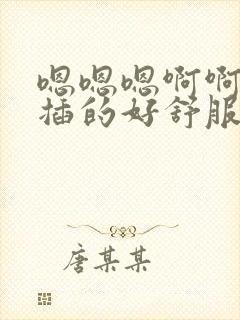 嗯嗯嗯啊啊
插的好舒服
唐某某